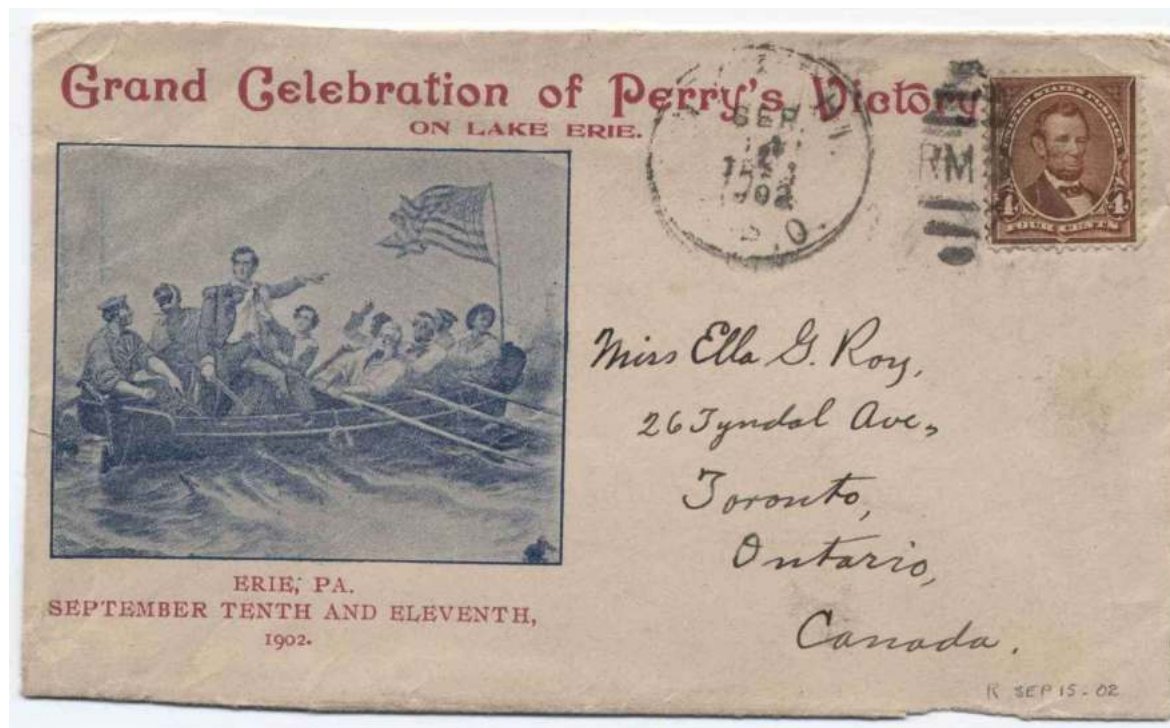 Grand Celebration of Perry's Victory
ON LAKE ERIE.
SEP
1902
R.P.O.
RMS
UNITED STATES POSTAGE
4 4
Miss Ella G. Roy,
26 Tyndal Ave,
Toronto,
Ontario,
Canada.
ERIE, PA.
SEPTEMBER TENTH AND ELEVENTH,
1902.
R SEP 15-02